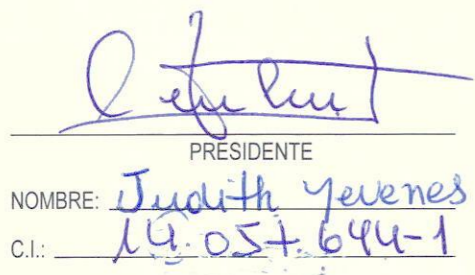 PRESIDENTE
NOMBRE: Judith Yevenes
C.I.: 14.057.644-1